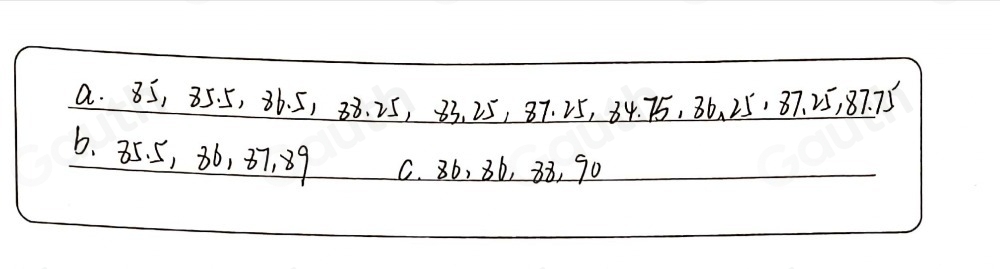 a. 85, 85.5, 86.5, 88.25, 83.25, 87.25, 84.75, 86.25, 87.25, 87.75
b. 85.5, 86, 87, 89 c. 86, 86, 88, 90